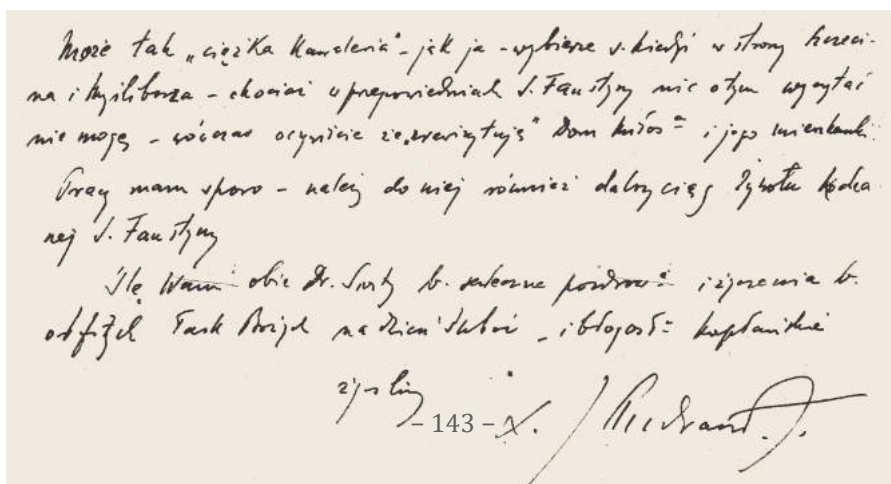 Może tak „ciężka kawaleria” – jak ja – wybierze s. kiedyś w strony Szczeci-
na i Myśliborza – chociaż w przepowiedniach S. Faustyny nic o tym wyczytać
nie mogę – wówczas oczywiście że „zrewizytuję” Dom Miłos= i jego mieszkanki.
Pracy mam sporo – należy do niej również dalszy ciąg żywotu kocha
nej S. Faustyny
Ślę Wam obie Dr. Siostry b. serdeczne pozdrow= i życzenia b.
obfitych Łask Bożych na dzień ślubów – i błogosł= kapłańskie
życzliwy
– 143 – X. J